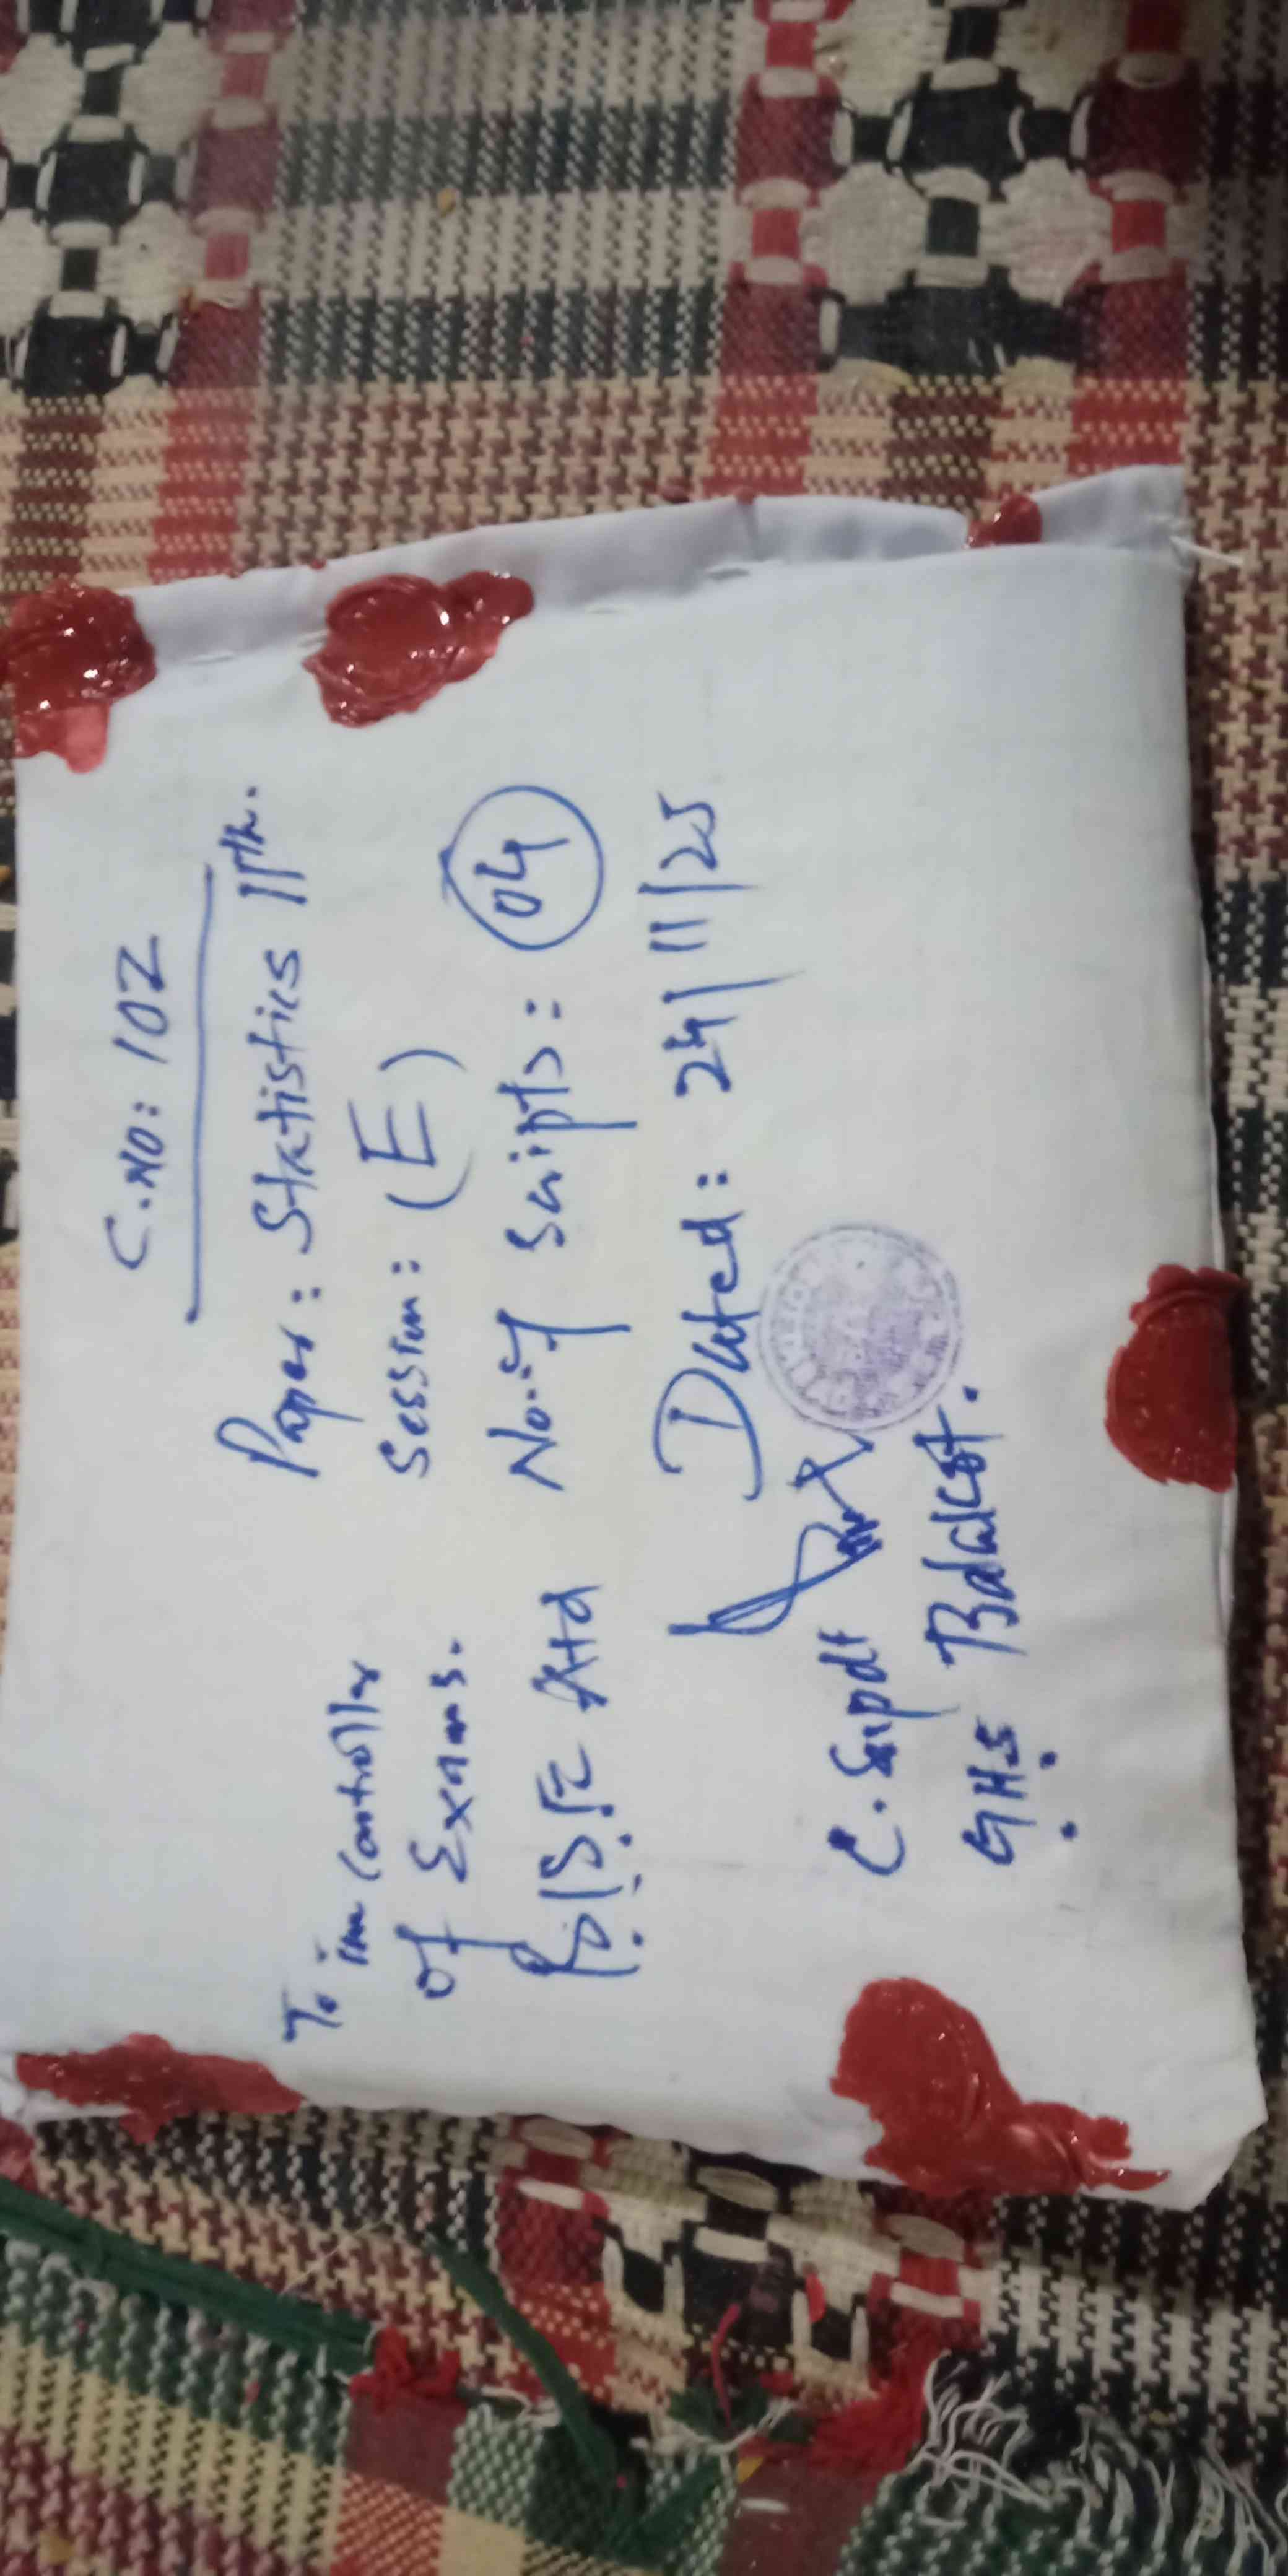 C.No: 102
Paper: Statistics 11th.
Session: (E)
No. of Scripts: 04
Dated: 24/11/25
To im Controller
of Exams.
B.I.S.E Atd
C. Supdt
G.H.S Balakot.